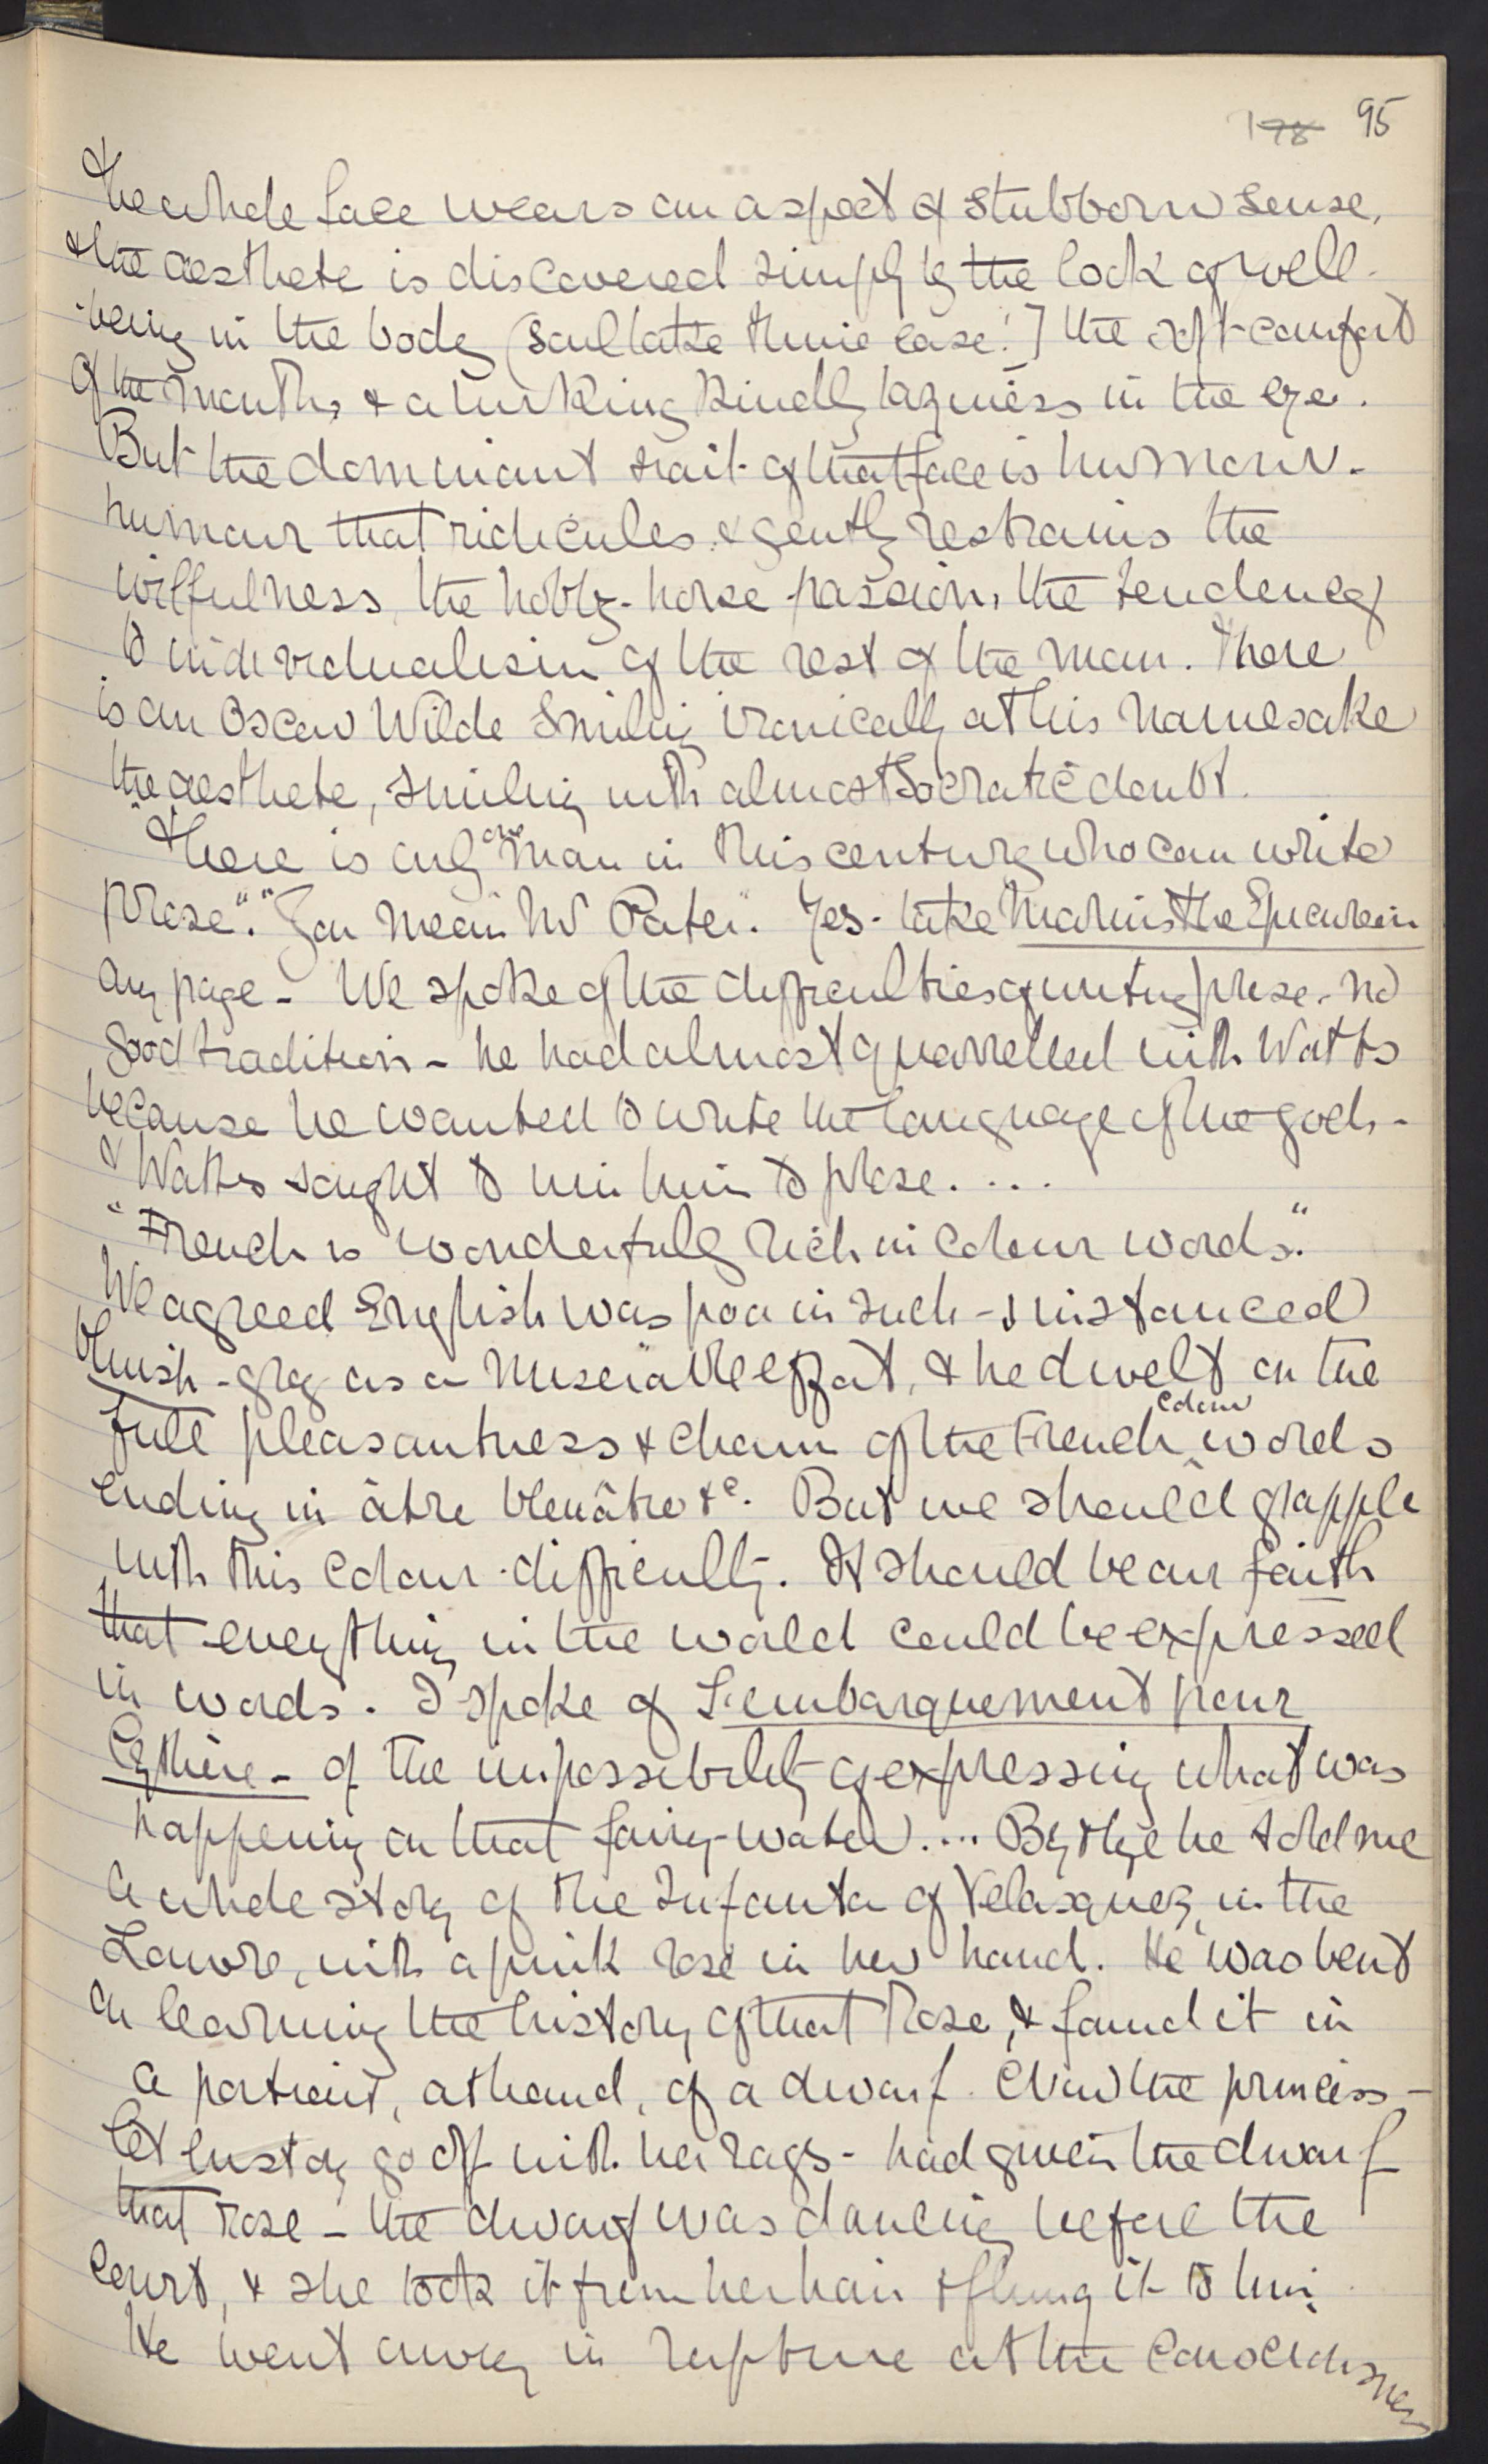 178 95
& the whole face wears an aspect of stubborn sense,
& the aesthete is discovered simply by the look of well-
-being in the body (soul take thine ease!] the soft comfort
of the mouth, & a lurking kindly laziness in the eye.
But the dominant trait of that face is humour -
humour that ridicules & gently restrains the
wilfulness, the hobby-horse passion, the tendency
to individualism of the rest of the man. There
is an Oscar Wilde smiling ironically at his namesake
the aesthete, smiling with almost Socratic doubt.
"There is only one man in this century who can write
prose". "You mean Mr Pater". Yes - take Marius the Epicurean
any page - We spoke of the difficulties of writing prose - no
good tradition - he had almost quarrelled with Watts
because he wanted to write the language of the gods -
& Watts sought to win him to prose. . . .
"French is wonderfully rich in colour words".
We agreed English was poor in such - I instanced
bluish-grey as a miserable effort, & he dwelt on the
full pleasantness & charm of the French colour words
ending in âtre bleuâtre &c. But we should grapple
with this colour-difficulty. It should be our faith
that everything in the world could be expressed
in words. I spoke of L'embarquement pour
Cythère - of the impossibility of expressing what was
happening on that fairy-water.... By & bye he told me
a whole story of the Infanta of Velasquez, in the
Louvre, with a pink rose in her hand. He was bent
on learning the history of that Rose, & found it in
a portrait, at hand, of a dwarf. Now the princess -
let history go off with her rags - had given the dwarf
that rose - the dwarf was dancing before the
Court, & she took it from her hair & flung it to him.
He went away in rapture at the consciousness